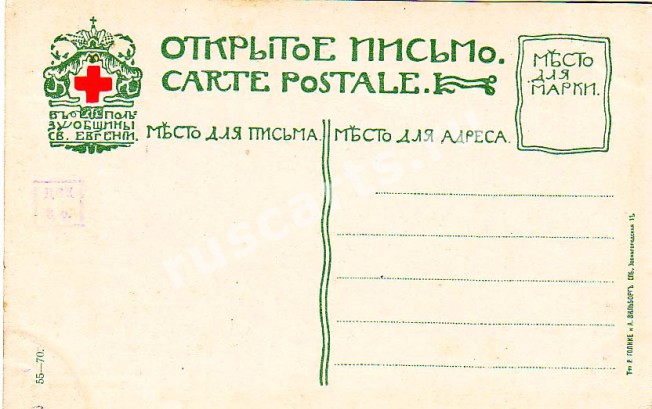 ОТКРЫТОЕ ПИСЬМО.
CARTE POSTALE.
МѢСТО
ДЛЯ
МАРКИ.
ВЪ ПОЛЬ
ЗУ ОБЩИНЫ
СВ. ЕВГЕНІИ.
МѢСТО ДЛЯ ПИСЬМА.
МѢСТО ДЛЯ АДРЕСА.
ЦѢН
55—70.
Т-во Р. ГОЛИКЕ и А. ВИЛЬБОРГЪ. СПБ., Звенигородская 11.
ruscarts.ru